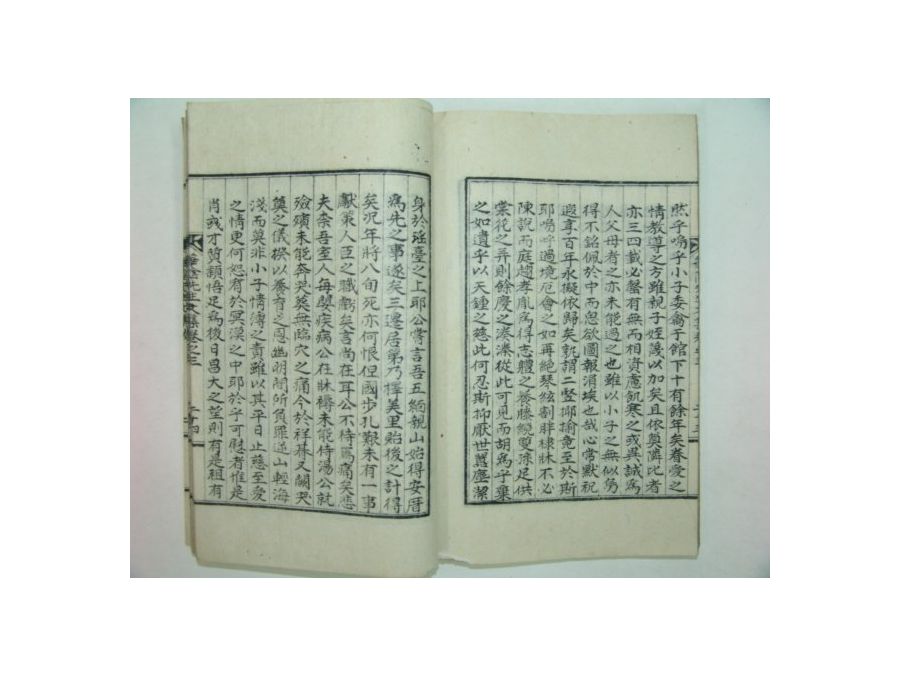 然乎嗚乎小子委禽于館下十有餘年矣眷愛之
情教導之方雖親子姪蔑以加矣且依奠隣比者
亦三四載必罄有無而相資慮飢寒之或異誠爲
人父母者之亦未能過之也雖以小子之無似仍
得不銘佩於中而思欲圖報涓埃也哉心常默祝
遐享百年永擬依歸矣孰謂二竪揶揄竟至於斯
耶嗚呼過境厄會之如再絶琴絃割腓棣牀不必
陳說而庭趨孝胤爲得志體之養滕繞蘭孫足供
棠花之弄則餘慶之溱溱從此可見而胡爲乎棄
之如遺乎以天鍾之慈此何忍斯抑厭世嚚塵潔
身於瑤臺之上耶公嘗言吾五緬親山始得安厝
爲先之事遂矣三遷居第乃擇美里貽後之計得
矣况年將八旬死亦何恨但國步孔艱未有一事
獻策人臣之職虧矣言尚在耳公不待焉痛矣悲
夫奈吾室人每嬰疾病公在牀褥未能侍湯公就
殮殯未能奔哭葬無臨穴之痛今於祥朞又闕哭
奠之儀揆以養育之恩幽明間所負罪逆山輕海
淺而莫非小子情薄之責雖以其平日止慈至愛
之情更何恕有於冥漠之中耶於乎可慰者惟是
肖戎才質頴悟足爲後日昌大之望則有是祖有
先生文集卷之三
二十四